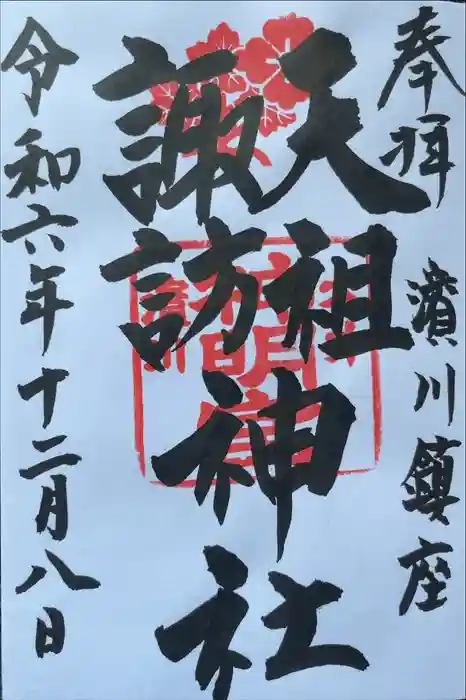 奉拝
濱川鎮座
天祖
諏訪
神社
令和六年十二月八日